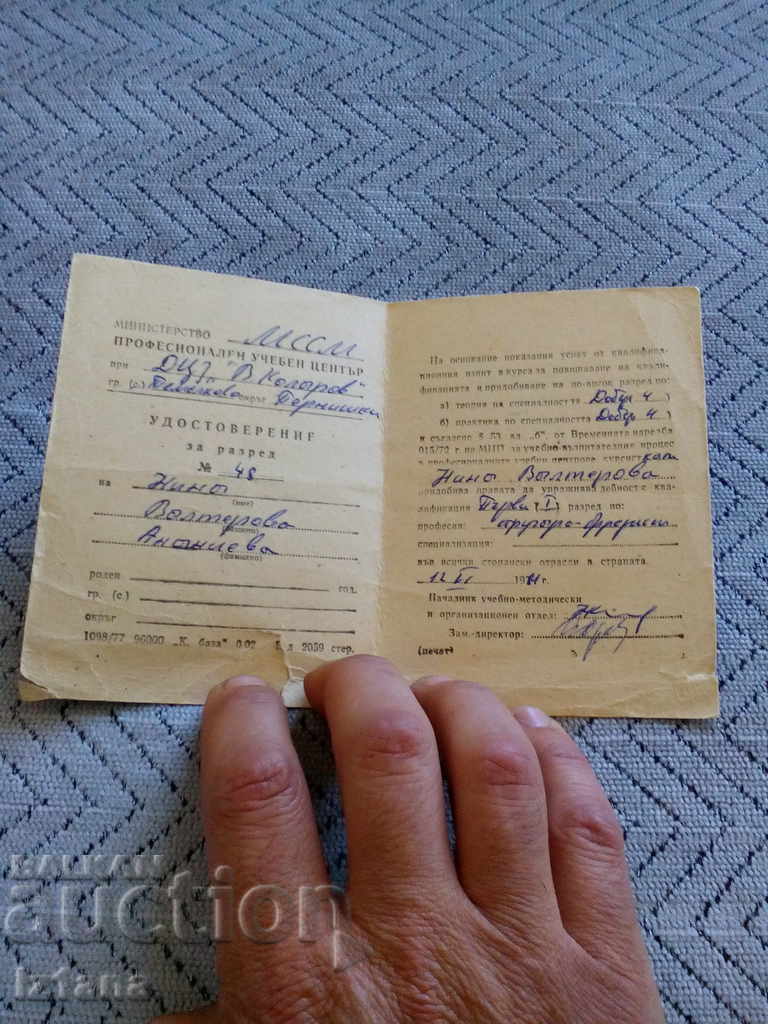 МИНИСТЕРСТВО МССМ
ПРОФЕСИОНАЛЕН УЧЕБЕН ЦЕНТЪР
при ДЦУ "В. Коларов"
гр. (с.) окръг Пернишки
УДОСТОВЕРЕНИЕ
за разред
№ 48
на Нина
(име)
Валтерова
(бащино)
Ананиева
(фамилно)
роден год.
гр. (с.)
окръг
1098/77 96000 „К. база" 0,02 л 2059 стер.
На основание показания успех от квалифика-
ционния изпит в курса за повишаване на квали-
фикацията и придобиване на по-висок разред по:
а) теория на специалността Добър 4 )
б) практика по специалността Добър 4 )
и съгласно § 53 ал. „б", от Временната наредба
015/72 г. на МНП за учебно-възпитателния процес
в професионалните учебни центрове, курсист ката
Нина Валтерова
придобива правата да упражнява дейност с ква-
лификация Първи (I) разред по:
професия:
специализация:
във всички стопански отрасли в страната.
12 VI г.
Началник учебно-методически
и организационен отдел:
Зам.-директор:
(печат)
БАЛКАН
auction
iztana